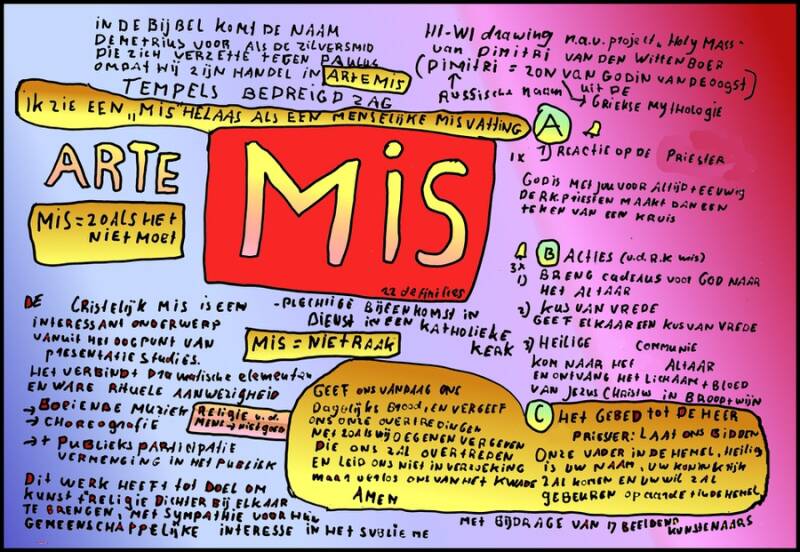 IN DE BIJBEL KOMT DE NAAM
DEMETRIUS VOOR ALS DE ZILVERSMID
DIE ZICH VERZETTE TEGEN PAULUS
OMDAT HIJ ZIJN HANDEL IN ARTEMIS
TEMPELS BEDREIGD ZAG
HI-WI drawing n.a.v. project, Holy Mass-
van DIMITRI VAN DEN WITTENBOER
(DIMITRI = ZON VAN GODIN VAN DE OOGST)
↑ Russische naam uit DE
→ GRIEKSE MYTHOLOGIE
IK ZIE EEN „MIS" HELAAS ALS EEN MENSELIJKE MISVATTING
ARTE
MiS
22 definities
MiS = ZOALS HET
NIET MOET
A
1x 1) REACTIE OP DE PRIESTER
GOD IS MET JOU VOOR ALTIJD + EEUWIG
DE R.K. PRIESTER MAAKT DAN EEN
TEKEN VAN EEN KRUIS
B ACTIES (v.d. R.K mis)
3x
1) BRENG CADEAUS VOOR GOD NAAR
HET ALTAAR
2) KUS VAN VREDE
GEEF ELKAAR EEN KUS VAN VREDE
3) HEILIGE COMMUNIE
KOM NAAR HET ALTAAR
EN ONTVANG HET LICHAAM + BLOED
VAN JEZUS CHRISTUS IN BROOD + WIJN
DE CRISTELIJK MIS IS EEN
INTERESSANT ONDERWERP
VANUIT HET OOGPUNT VAN
PRESENTATIE STUDIES.
HET VERBINDT DRAMATISCHE ELEMENTEN
EN WARE RITUELE AANWEZIGHEID
→ BOEIENDE MUZIEK
→ CHOREOGRAFIE
→ + PUBLIEKS PARTICIPATIE
VERMENGING IN HET PUBLIEK
- PLECHTIGE BIJEENKOMST IN
DIENST IN EEN KATHOLIEKE
KERK
MiS = NIET RAAK
RELIGIE v.d.
MENS → niet GOED
GEEF ONS VANDAAG ONS
DAGELIJKS BROOD, EN VERGEEF
ONS ONZE OVERTREDINGEN
NET ZOALS WIJ DEGENEN VERGEVEN
DIE ONS ZAL OVERTREDEN
EN LEID ONS NIET IN VERZOEKING
MAAR VERLOS ONS VAN HET KWADE
AMEN
C HET GEBED TOT DE HEER
PRIESTER: LAAT ONS BIDDEN
ONZE VADER IN DE HEMEL, HEILIG
IS UW NAAM, UW KONINKRIJK
ZAL KOMEN EN UW WIL ZAL
GEBEUREN OP AARDE + IN DE HEMEL
DIT WERK HEEFT TOT DOEL OM
KUNST + RELIGIE DICHTER BIJ ELKAAR
TE BRENGEN, MET SYMPATHIE VOOR HUN
GEMEENSCHAPPELIJKE INTERESSE IN HET SUBLIEME
MET BIJDRAGE VAN 17 BEELDEND KUNSTENAARS